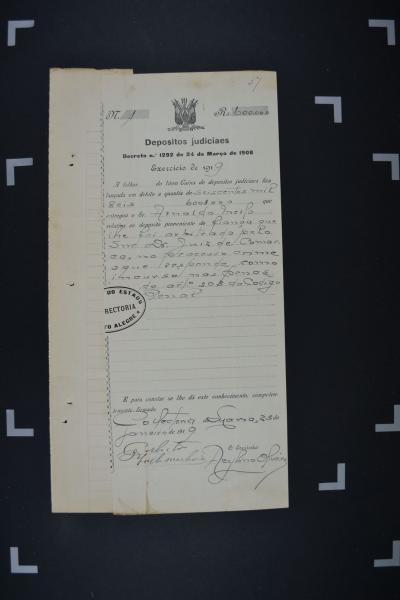 57
Nº 1 Rs. 600.000
Depositos judiciaes
Decreto n.º 1292 de 24 de Março de 1908
Exercicio de 1919
A folhas do livro Caixa de depositos judiciaes fica
lançada em debito a quantia de seiscentos mil
reis 600$000 que
entregou o sr. Arnaldo
relativa ao deposito proveniente da fiança que
lhe foi arbitrada pelo
Snr. Dr. Juiz de Comar
ca, no processo crime
a que responde, como
incurso nas penas
do artº 303 do Codigo
Penal
DO ESTADO
DIRECTORIA
PORTO ALEGRE
E para constar se lhe dá este conhecimento, competen-
temente firmado
Collectoria de 23 de
janeiro de 1919
O Escrivão